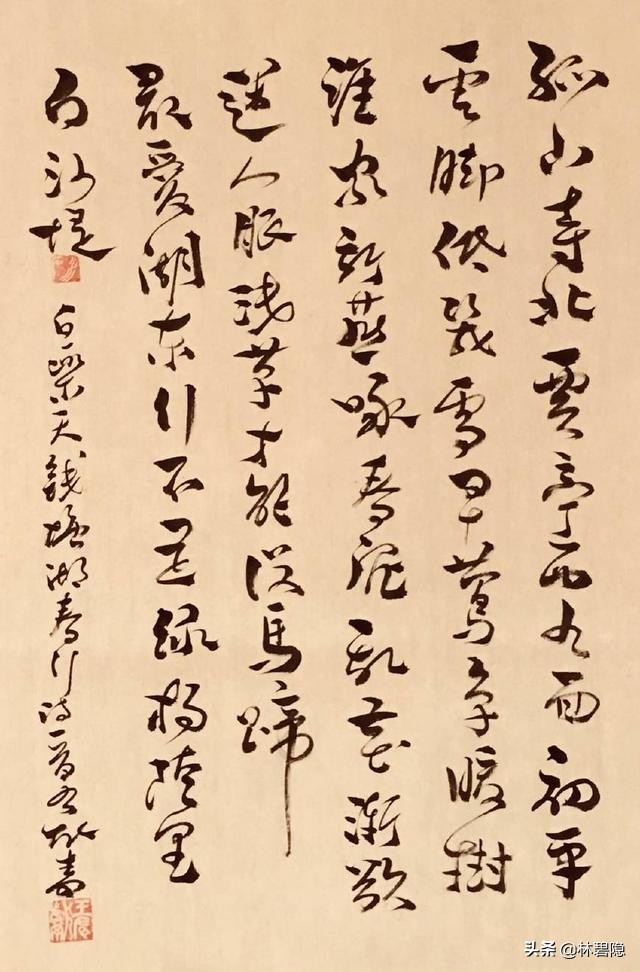 孤山寺北賈亭西水面初平
雲脚低幾處早鶯爭暖樹
誰家新燕啄春泥乱花漸欲
迷人眼浅草才能没馬蹄
最愛湖東行不足綠楊陰里
白沙堤
白樂天錢塘湖春行詩一首
头条 @林碧隐